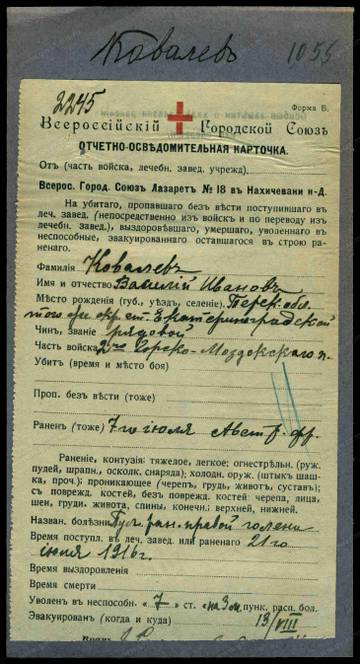 Ковалевъ 1055
2245
Форма В.
Всероссійскій Городской Союзъ
ОТЧЕТНО-ОСВѢДОМИТЕЛЬНАЯ КАРТОЧКА.
Отъ (часть войска, лечебн. завед. учрежд.)
Всерос. Город. Союзъ Лазаретъ № 18 въ Нахичевани н-Д.
На убитаго, пропавшаго безъ вѣсти поступившаго въ
леч. завед. (непосредственно изъ войскъ и по переводу изъ
лечебн. завед.), выздоровѣвшаго, умершаго, уволеннаго въ
неспособные, эвакуированнаго оставшагося въ строю ра-
ненаго.
Фамилія Ковалевъ
Имя и отчество Василій Ивановъ
Мѣсто рожденія (губ., уѣздъ, селеніе). Терск. обл.
окр. ст. Екатериноградской
Чинъ, званіе рядовой
Часть войска 2го Горско-Моздокскаго п.
Убитъ (время и мѣсто боя)
Проп. безъ вѣсти (тоже)
Раненъ (тоже) 7го іюля Австр. фр.
Раненіе, контузія: тяжелое, легкое; огнестрѣльн. (руж.
пулей, шрапн., осколк. снаряда); холодн. оруж. (штык шаш-
ка, проч.); проникающее (черепъ, грудь, животъ, суставъ);
съ поврежд. костей, безъ поврежд. костей черепа, лица,
шеи, груди. живота, спины, конечн.: верхней, нижней.
Назван. болѣзни Пул. ран. правой голени
Время поступл. въ леч. завед. или раненаго 21го
іюля 1916 г.
Время выздоровленія
Время смерти
Уволенъ въ неспособн. „7" ст. „на 3 м. пунк. расп. бол.
Эвакуированъ (когда и куда) 13/VIII